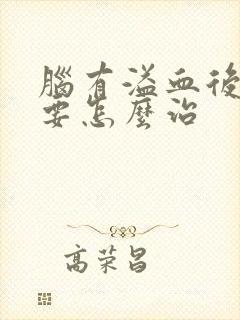 腦有溢血後
要怎麼治
高荣昌